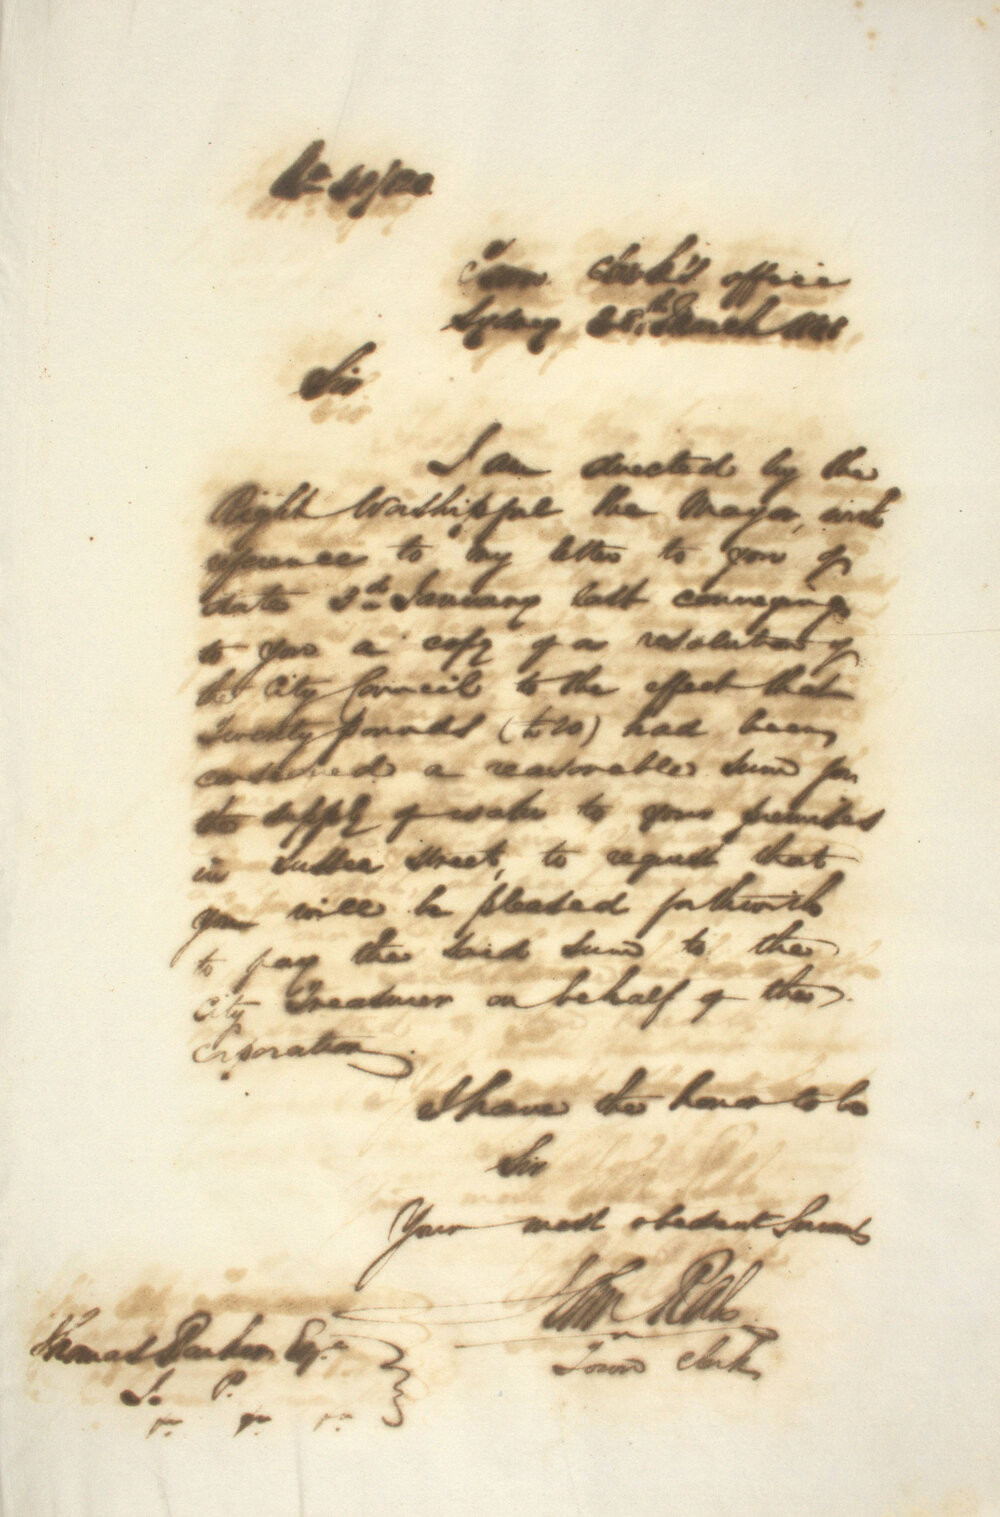 Town Clerk's office
Sydney 28th March
Sir
I am directed by the
Right Worshipful the Mayor, with
reference to my letter to you of
date 3rd January last conveying
to you a copy of a resolution of
the City Council to the effect that
Twenty pounds (£20) had been
considered a reasonable sum for
the supply of water to your premises
in Sussex Street, to request that
you will be pleased forthwith
to pay the said sum to the
City Treasurer on behalf of the
Corporation.
I have the honor to be
Sir
Your most obedient Servant
John
Town Clerk
Thomas Barker Esqr
J. P.